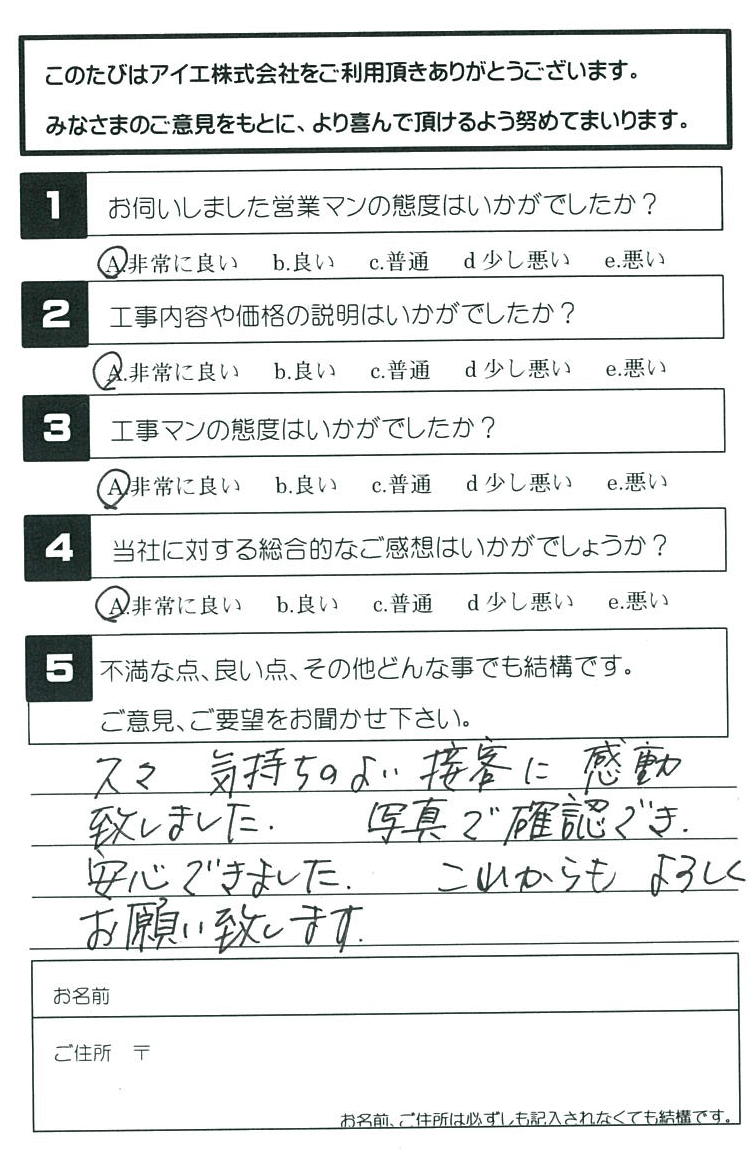 このたびはアイエ株式会社をご利用頂きありがとうございます。
みなさまのご意見をもとに、より喜んで頂けるよう努めてまいります。
1 お伺いしました営業マンの態度はいかがでしたか？
A.非常に良い b.良い c.普通 d 少し悪い e.悪い
2 工事内容や価格の説明はいかがでしたか？
A.非常に良い b.良い c.普通 d 少し悪い e.悪い
3 工事マンの態度はいかがでしたか？
A.非常に良い b.良い c.普通 d 少し悪い e.悪い
4 当社に対する総合的なご感想はいかがでしょうか？
A.非常に良い b.良い c.普通 d 少し悪い e.悪い
5 不満な点、良い点、その他どんな事でも結構です。
ご意見、ご要望をお聞かせ下さい。
気持ちのよい 接客に 感動
致しました. 写真で確認でき.
安心できました. これからも よろしく
お願い致します.
お名前
ご住所 〒
お名前、ご住所は必ずしも記入されなくても結構です。